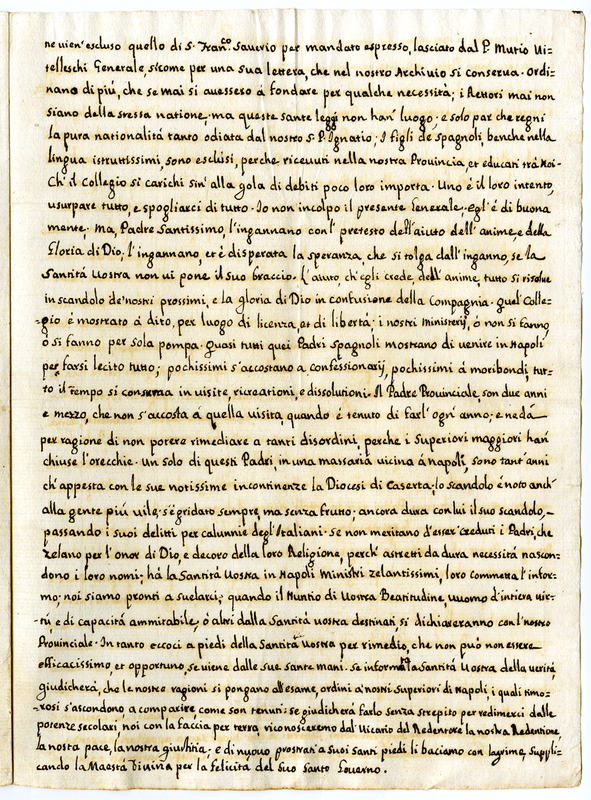 ne vien' escluso quello di S. Fran.co Saverio per mandato espresso, lasciato dal P. Mutio Vi=
telleschi Generale, sicome per una sua lettera, che nel nostro Archivio si conserva. Ordi=
nano di più, che se mai si avessero à fondare per qualche necessità; i Rettori mai non
siano della stessa natione; ma queste sante leggi non han' luogo. e solo par che regni
la pura nationalità tanto odiata dal nostro S. P. Ignatio; I figli de spagnoli, benche nella
lingua istruttissimi, sono esclusi, perche ricevuti nella nostra Provincia, et educati trà noi.
Ch' il Collegio si carichi sin' alla gola di debiti poco loro importa. Uno è il loro intento,
usurpare tutto, e spogliarci di tutto. Io non incolpo il presente Generale, egl' è di buona
mente. Ma, Padre Santissimo, l'ingannano con l' pretesto dell' aiuto dell' anime, e della
Gloria di Dio; l'ingannano, et è disperata la speranza, che si tolga dall' inganno, se la
Santità Vostra non vi pone il suo braccio. L'aiuto, ch'egli crede, dell' anime, tutto si risolve
in scandolo de' nostri prossimi, e la gloria di Dio in confusione della Compagnia. Quel Colle=
=gio è mostrato à dito, per luogo di licenza, et di libertà; i nostri ministerij, ò non si fanno,
ò si fanno per sola pompa. Quasi tutti quei Padri spagnoli mostrano di venire in Napoli
per farsi lecito tutto; pochissimi s'accostano a confessionarij, pochissimi à moribondi, tut=
to il tempo si consuma in visite, ricreationi, e dissolutioni. Il Padre Provinciale, son due anni
e mezzo, che non s'accosta à quella visita, quando è tenuto di farl' ogn' anno; e ne dà
per ragione di non potere rimediare a tanti disordini, perche i Superiori maggiori han'
chiuse l'orecchie. Un solo di questi Padri, in una massaria vicina à Napoli, sono tant' anni
ch' appesta con le sue notissime incontinenze la Diocesi di Caserta; lo scandolo è noto anch'
alla gente più vile; s'è gridato sempre, ma senza frutto; ancora dura con lui il suo scandolo,
passando i suoi delitti per calunnie degl' Italiani. Se non meritano d'esser' creduti i Padri, che
zelano per l'onor di Dio, e decoro della loro Religione, perch' astretti da dura necessità nascon=
dono i loro nomi; hà la Santità Vostra in Napoli Ministri zelantissimi, loro commetta l' infor=
mo; noi siamo pronti a svelarci; quando il Nuntio di Vostra Beatitudine, vuomo d'intiera vir=
=tù, e di capacità ammirabile, ò altri dalla Santità vostra destinati, si dichiareranno con l' nostro
Provinciale. In tanto eccoci a piedi della Santità Vostra per rimedio, che non può non essere
efficacissimo, et opportuno, se viene dalle sue sante mani. Se informata la Santità Vostra della verità,
giudicherà, che le nostre ragioni si pongano all' esame, ordini à nostri Superiori di Napoli, i quali timo=
=rosi s'ascondono a comparire come son tenuti: se giudicherà farlo senza strepito per redimerci dalle
potenze secolari, noi con la faccia per terra, riconosceremo dal Vicario del Redentore la nostra Redentione,
la nostra pace, la nostra giustitia; e di nuovo prostrati a suoi santi piedi li baciamo con lagrime, suppli=
cando la Maestà Divina per la felicità del suo Santo Governo.